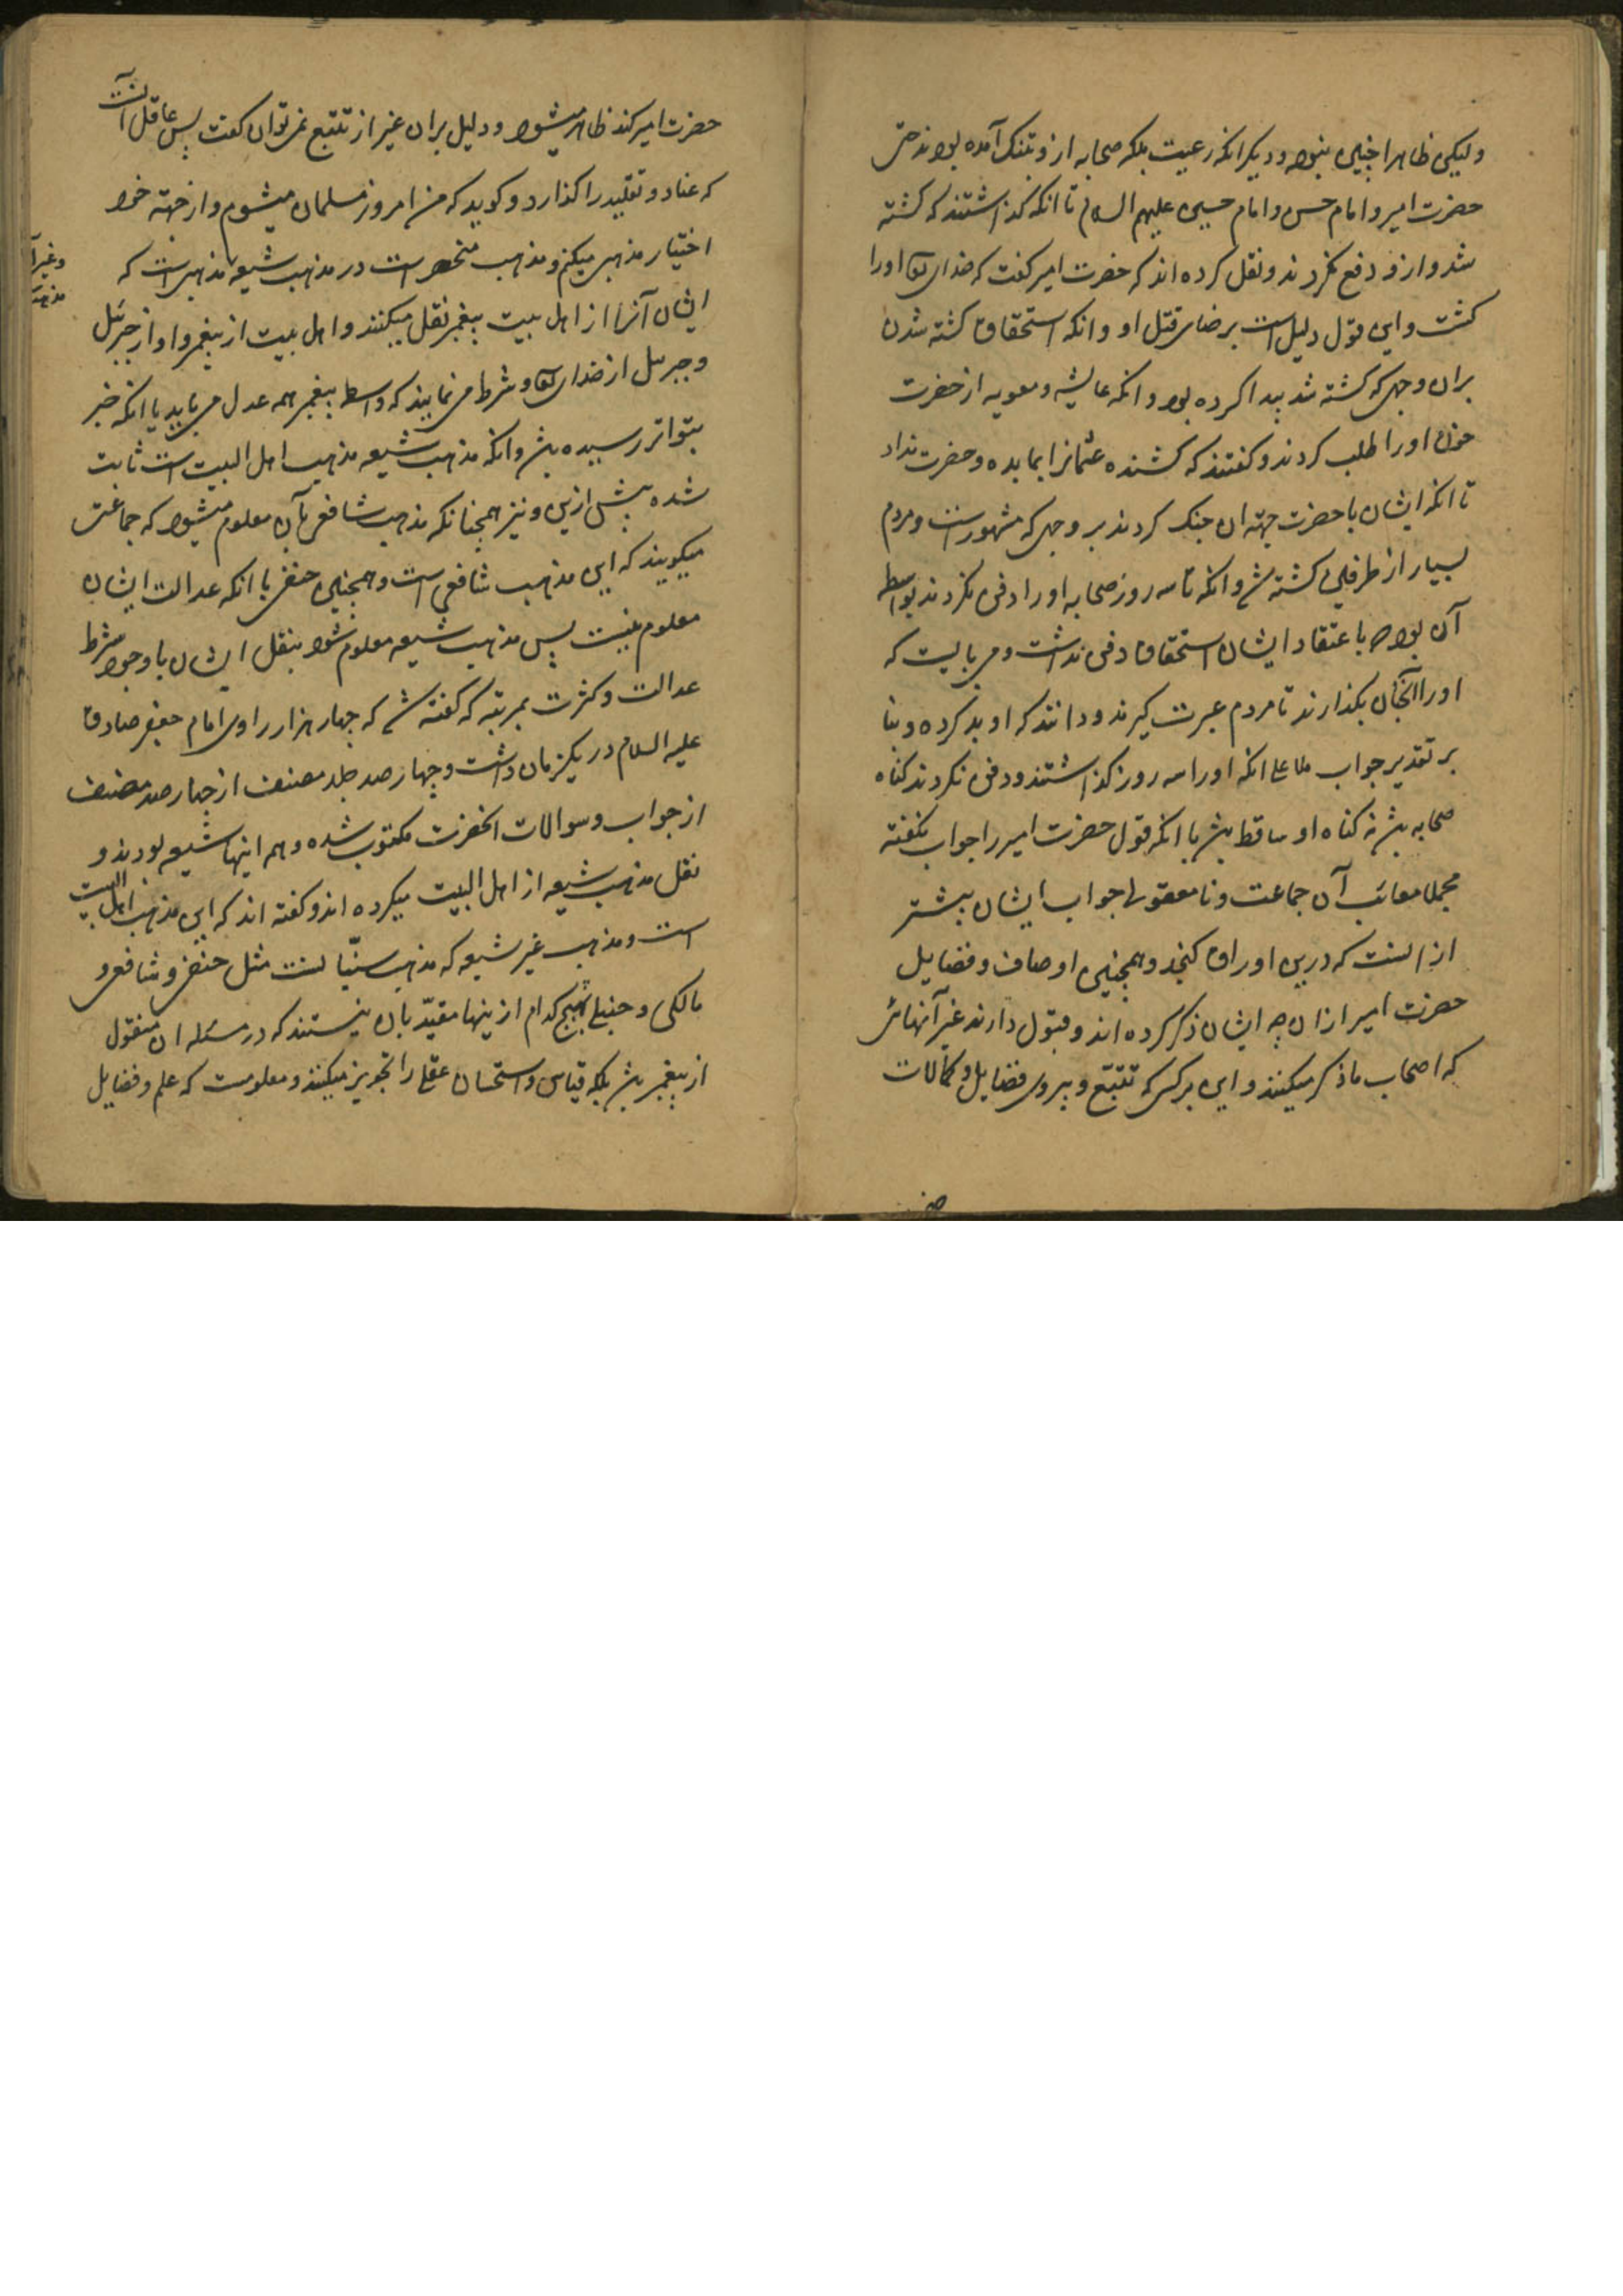 ولیکن ظاهرا چنین نبود و دیکر انکه رعیت بلکه صحابه ازو بتنک آمده بودند حتی
حضرت امیر و امام حسن و امام حسین علیهم السلام تا انکه کذاشتند که کشته
شد و ازو دفع نکردند و نقل کرده اند که حضرت امیر کفت که خدای تعا اورا
کشت و این قول دلیل است بر رضای قتل او و انکه استحقاق کشته شدن
بران وجهی که کشته شد پیدا کرده بود و انکه عایشه و معویه از حضرت
خون اورا طلب کردند و کفتند که کشنده عثمانرا بما بده و حضرت نداد
تا انکه ایشان با حضرت جهة ان جنک کردند بر وجهی که مشهورست و مردم
بسیار از طرفین کشته ش و انکه تا سه روز صحابه اورا دفن نکردند بواسطه
آن بود که باعتقاد ایشان استحقاق دفن نداشت و می بایست که
اورا انجنان بکذارند تا مردم عبرت کیرند و دانند که او بد کرده و بنا
بر تقدیر جواب ملا علی انکه اورا سه روز کذاشتند و دفن نکردند کناه
صحابه بش نه کناه او ساقط بش با انکه قول حضرت امیر را جواب نکفته
مجملا معائب آن جماعت و نا معقولی جواب ایشان بیشتر
از انست که درین اوراق کنجد و همچنین اوصاف و فضایل
حضرت امیر ازان چه ایشان ذکر کرده اند و قبول دارند غیر آنهائی
که اصحاب ما ذکر میکنند و این بر کسی که تتبع و پیروی فضایل و کمالات
حضرت امیر کند ظاهر میشود و دلیل بران غیر از تتبع نمی توان کفت پس عاقل آنست
که عناد و تقلید را کذارد و کوید که من امروز مسلمان میشوم و از جهة خود
اختیار مذهبی میکنم و مذهب منحصر است در مذهب شیعه مذهبی است که
وغیر آ
ایشان آنرا از اهل بیت پیغمبر نقل میکنند و اهل بیت از پیغمبر و او از جبرئیل
و جبرئیل از خدای تعا و شرط می نمایند که واسطه پیغمبر همه عدل می باید یا انکه خبر
بتواتر رسیده بش و انکه مذهب شیعه مذهب اهل البیت است ثابت
شده پیش ازین و نیز همچنانکه مذهب شافعی بآن معلوم میشود که جماعتی
میکویند که این مذهب شافعی است و همچنین حنفی با انکه عدالت ایشان
معلوم نیست پس مذهب شیعه معلوم شود بنقل ایشان با وجود شرط
عدالت و کثرت بمرتبه که کفته ش که چهار هزار راوی امام جعفر صادق
علیه السلام در یکزمان داشت و چهار صد جلد مصنف از چهار صد مصنف
از جواب و سوالات انحضرت مکتوب شده و هم اینها شیعه بودند و
نقل مذهب شیعه از اهل البیت میکرده اند و کفته اند که این مذهب اهل البیت
است و مذهب غیر شیعه که مذهب سنّیانست مثل حنفی و شافعی و
مالکی و حنبلی هیچ کدام ازینها مقیّد بان نیستند که در مسئله ان منقول
از پیغمبر بش بلکه قیاس و استحسان عقلی را تجویز میکنند و معلومست که علم و فضایل